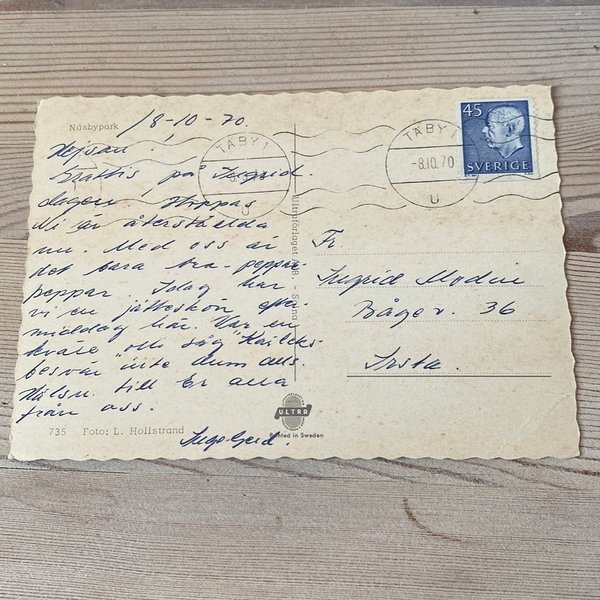 Näsbypark
/8-10-70.
Hejsan!
Grattis på Ingrid
dagen. Hoppas
Ni är återställda
nu. Med oss är
det bara bra - peppar
peppar. Idag har
vi en jätteskön efter
middag här. Var en
"Kärleks
besvär" inte dum alls.
Hälsn. till Er alla
från oss.
Ingegerd.
735 Foto: L. Hollstrand
Ultraförlaget
ULTRA
Printed in Sweden
TÄBY 1
U
TÄBY 1
-8.10.70
U
45
SVERIGE
Fr.
Ingrid Modin
Båge v. 36
Irsta.